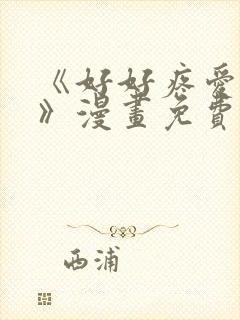 《好好疼爱
》漫畫免費
西浦